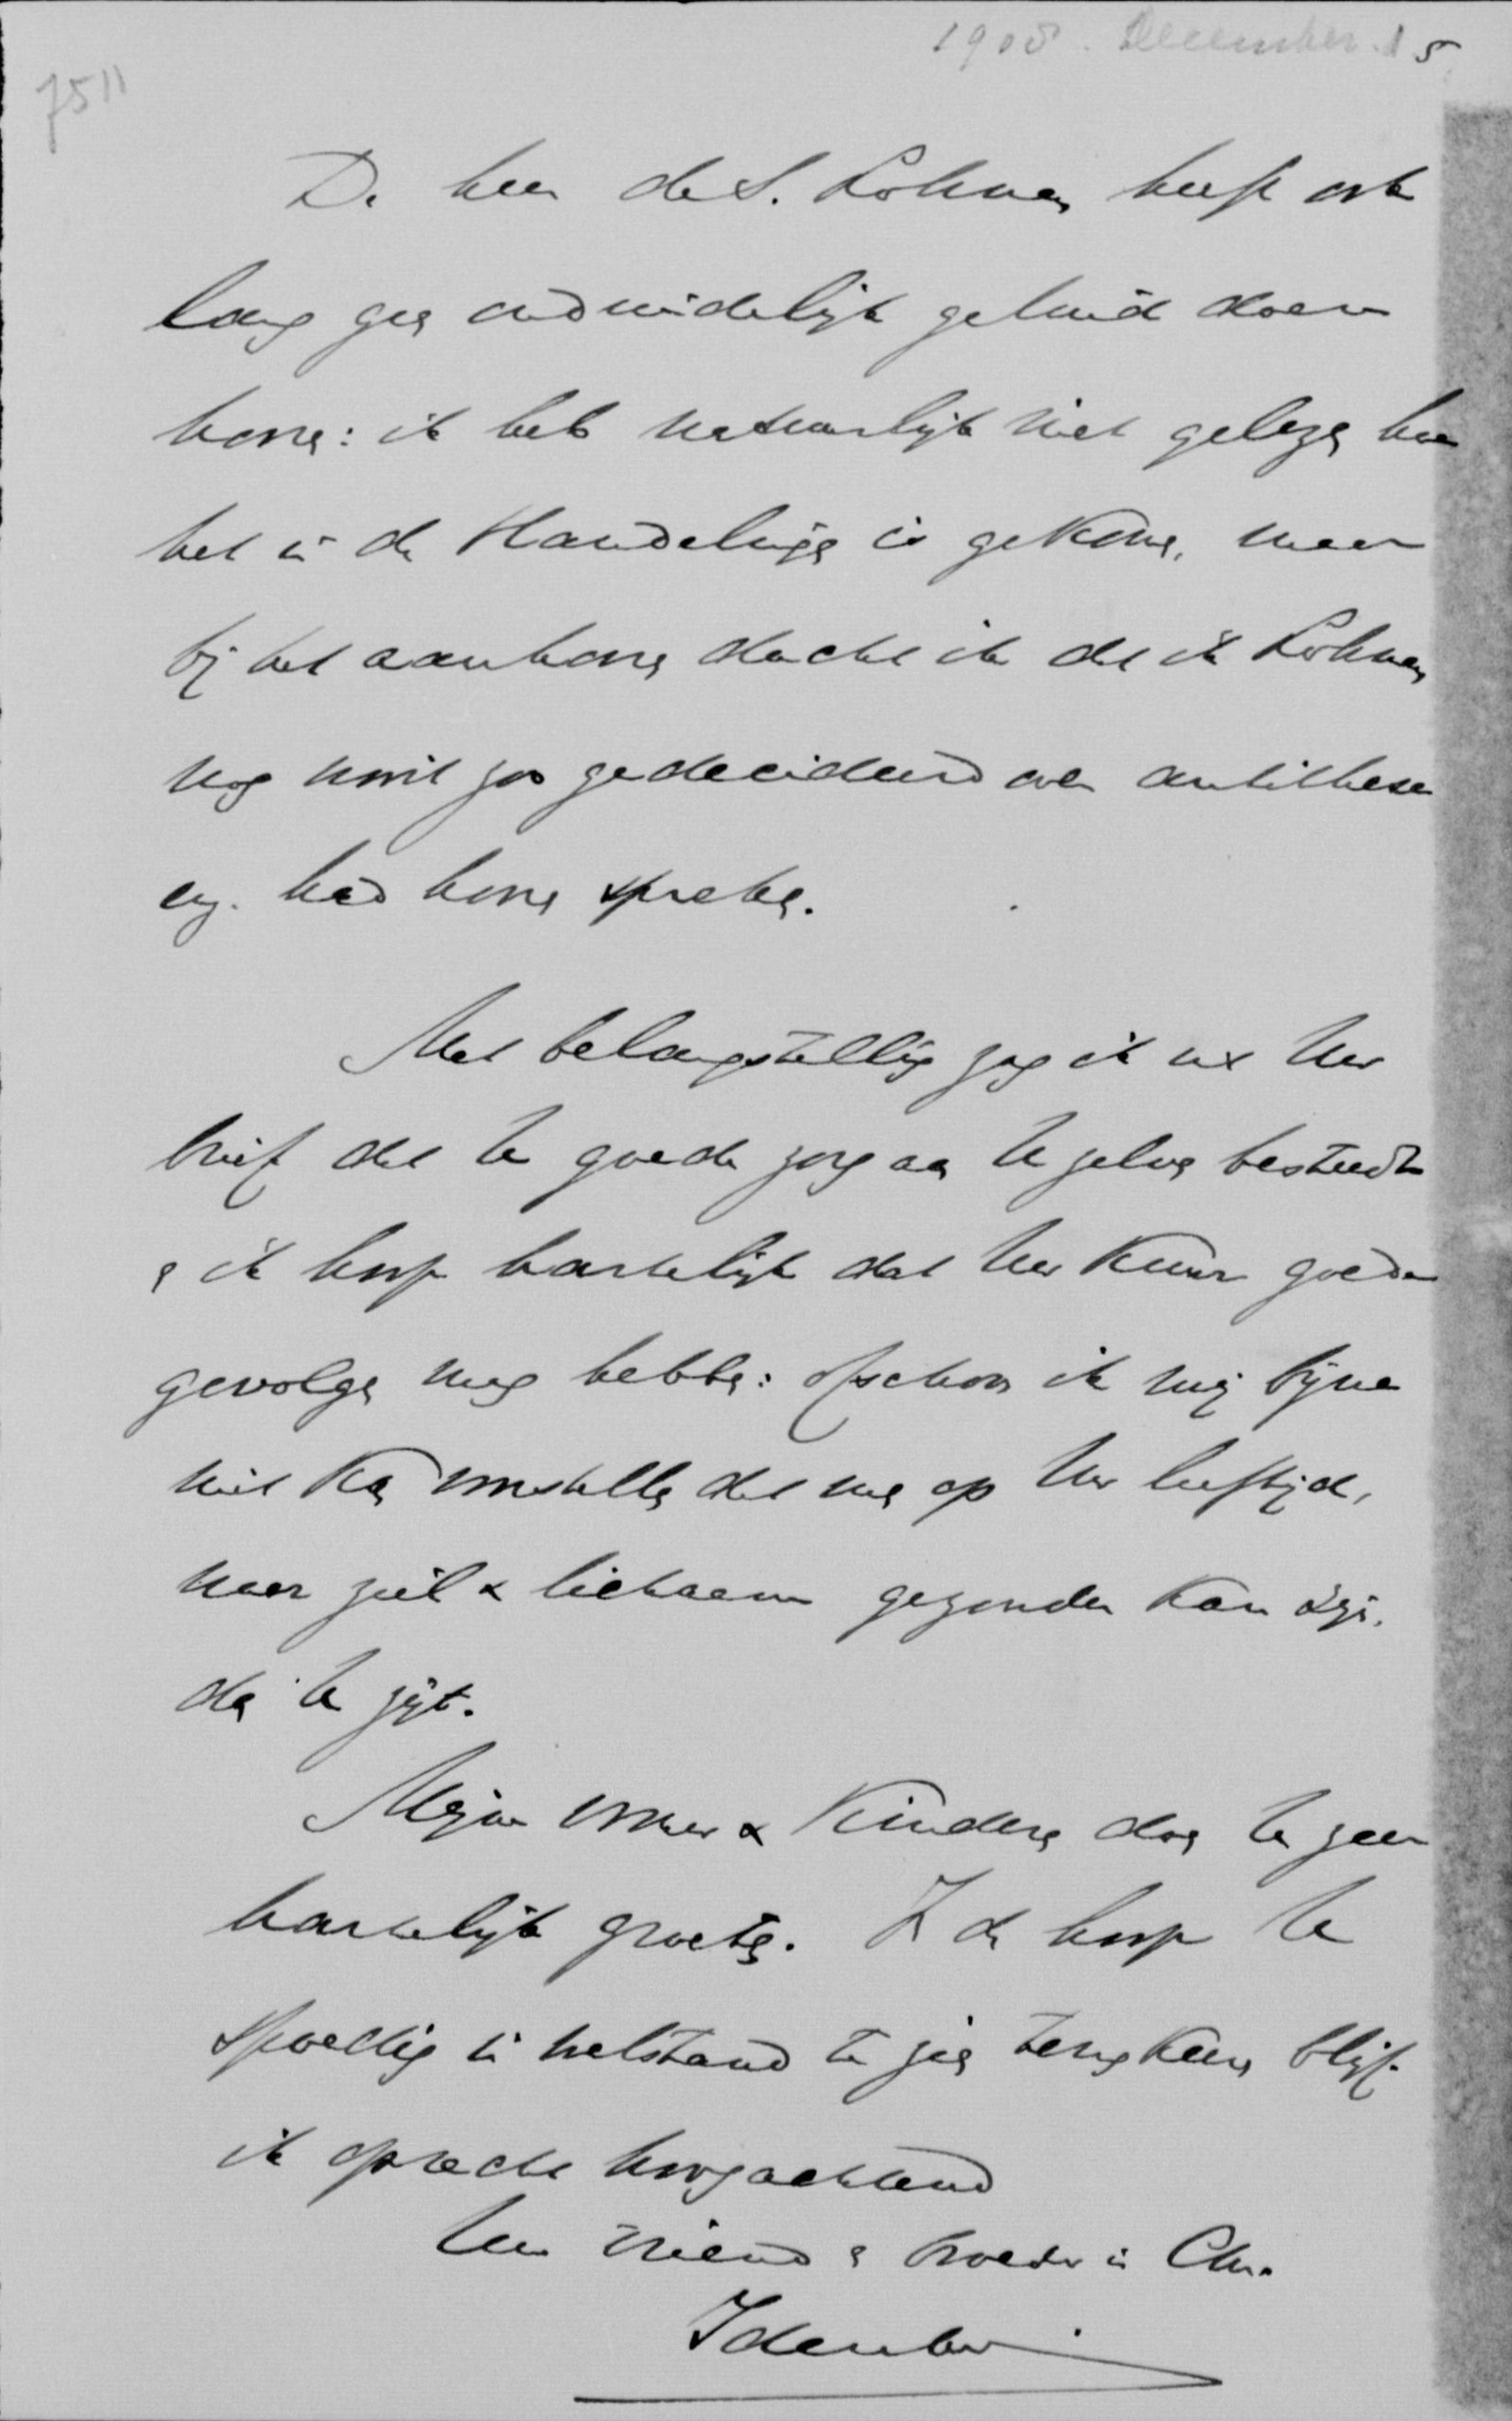 1908. December 15
7511
De heer de S. Lohman heeft ook
lang geen onduidelijk geluid doen
hooren: ik heb natuurlijk niet gelezen hoe
het in de Handelingen is gekomen, maar
bij het aanhooren dacht ik dat ik Lohman
nog nooit zoo gedecideerd over antithese
enz. had hooren spreken.
Met belangstelling zag ik uit Uw
brief dat U goede zorg aan U zelven besteedt
en ik hoop hartelijk dat Uw Kuur goede
gevolgen moge hebben: ofschoon ik mij bijna
niet kan voorstellen dat men op Uw leeftijd,
naar ziel & lichaam gezonder kan zijn,
dan U zijt.
Mijne vrouw & Kinderen doen U zeer
hartelijk groeten. In de hoop U
spoedig in welstand te zien terugkeeren blijf
ik oprecht hoogachtend
Uw vriend en broeder in Chr.
Idenburg